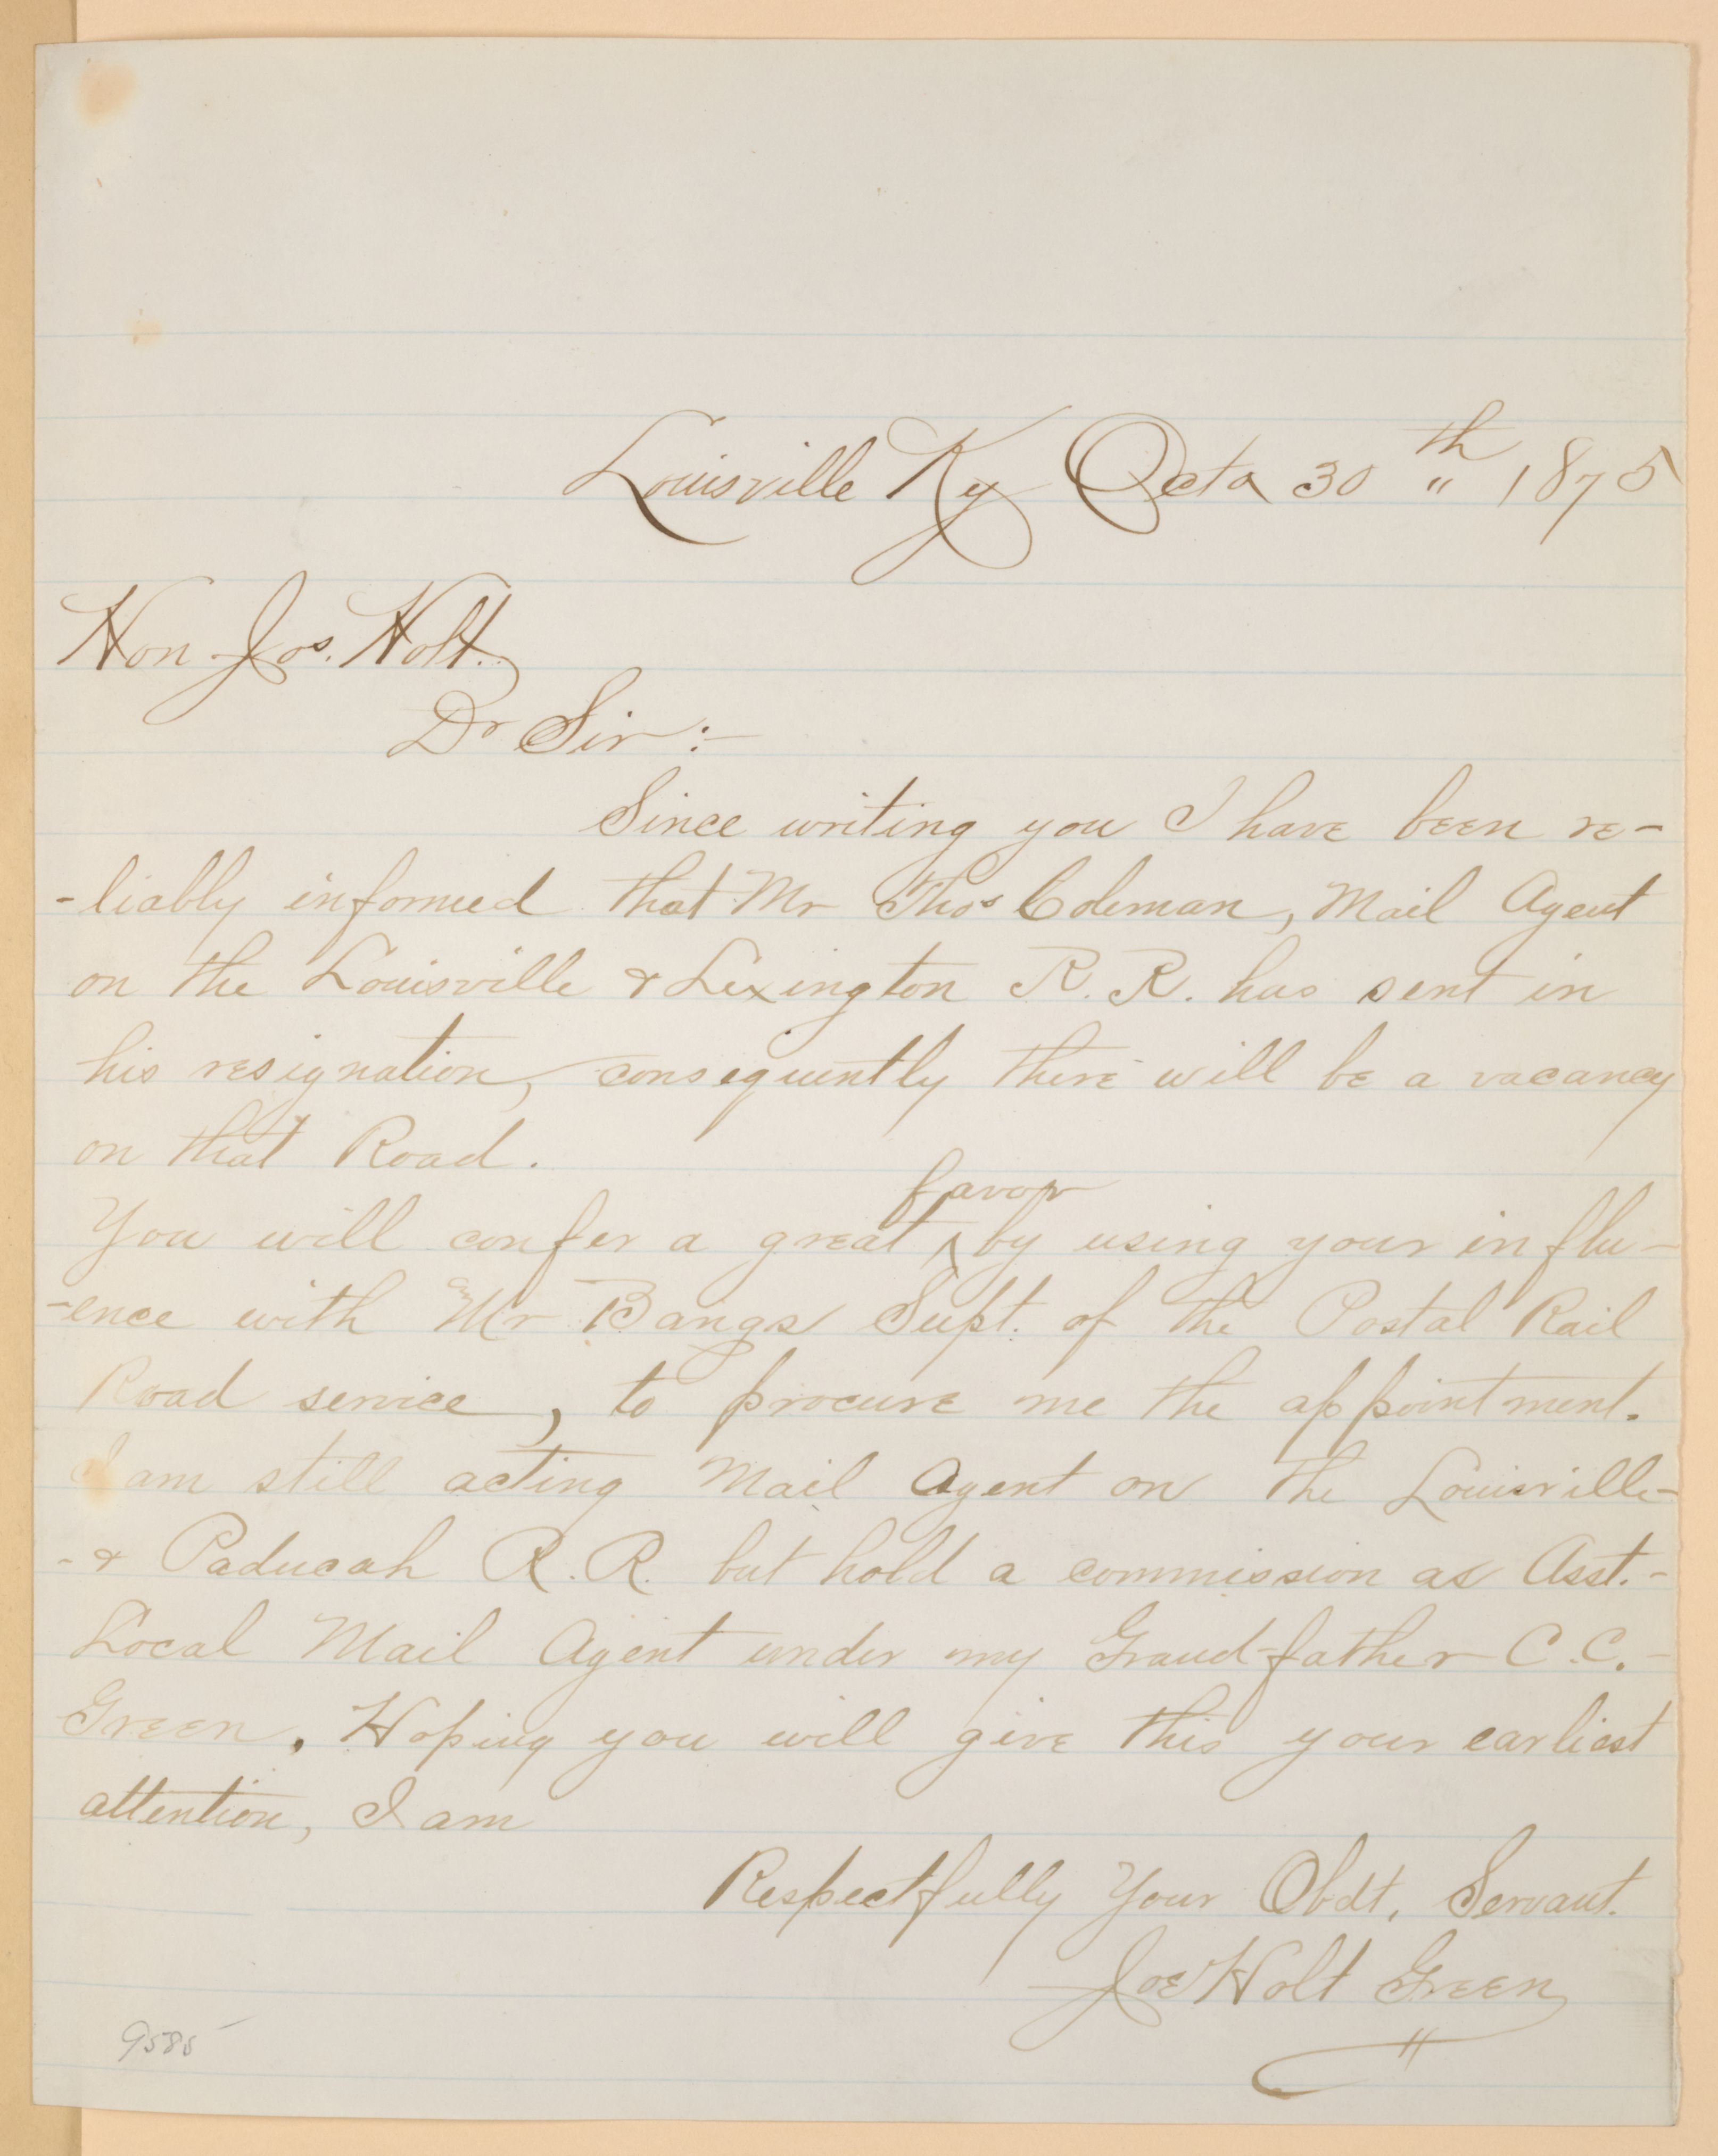 Louisville Ky Octo 30th " 1875
Hon Jos. Holt.
Dr Sir:-
Since writing you I have been re-
-liably informed that Mr Thos Coleman, Mail Agent
on the Louisville & Lexington R. R. has sent in
his resignation, consequently there will be a vacancy
on that Road.
favor
You will confer a great ^ by using your influ-
-ence with Mr Bangs Supt. of the Postal Rail
Road service, to procure me the appointment.
I am still acting Mail Agent on the Louisville-
-& Paducah R. R. but hold a commission as Asst.-
Local Mail Agent under my Grand-father C. C.-
Green. Hoping you will give this your earliest
attention, I am
Respectfully Your Obdt. Servant.
Joe Holt Green
9585